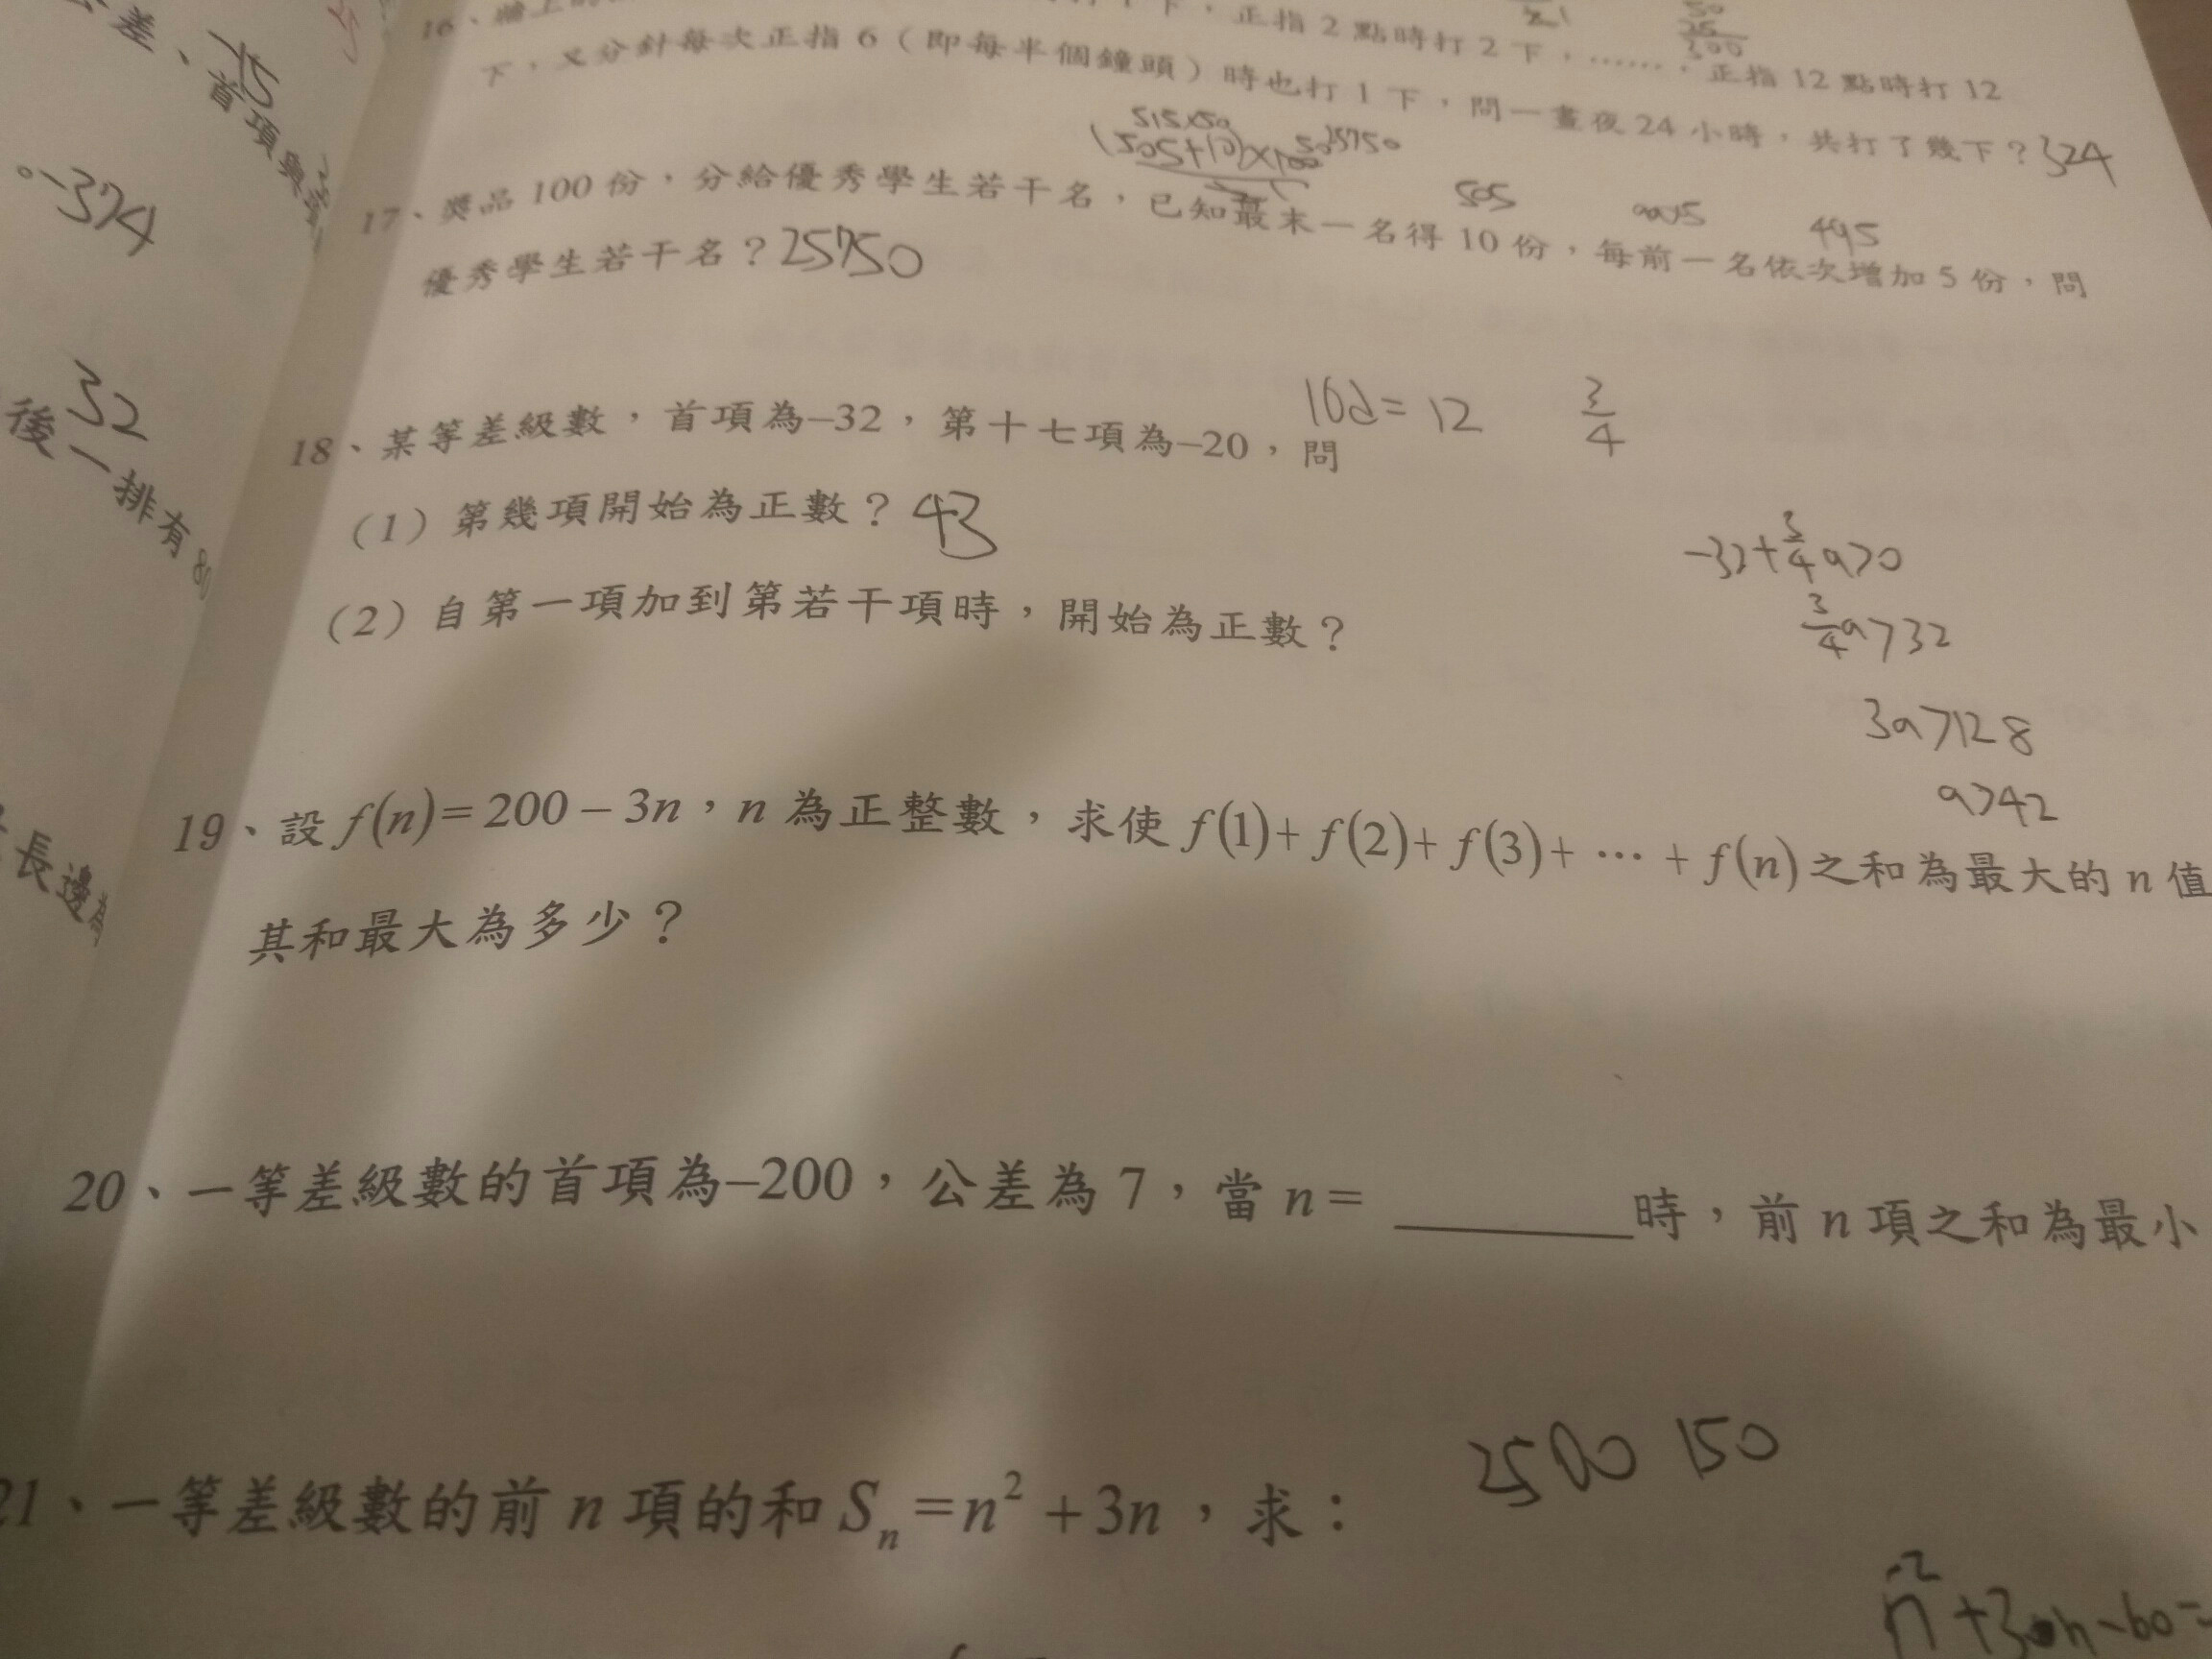 差、首項與
-15
-374
32
後一排有80
長邊
50
25
300
16、牆上的
正指2點時打2下,……,正指12點時打12
下,又分針每次正指6(即每半個鐘頭)時也打1下,問一晝夜24小時,共打了幾下?324
515×50
(505+10)×100
25750
505
495
17、獎品100份,分給優秀學生若干名,已知最末一名得10份,每前一名依次增加5份,問
優秀學生若干名?25750
16d=12 3/4
18、某等差級數,首項為–32,第十七項為–20,問
(1)第幾項開始為正數?43
-32+3/4a>0
(2)自第一項加到第若干項時,開始為正數?
3/4a>32
3a>128
a>42
19、設 f(n)=200-3n,n 為正整數,求使 f(1)+f(2)+f(3)+…+f(n)之和為最大的 n 值
其和最大為多少?
20、一等差級數的首項為–200,公差為 7,當 n= ______時,前 n 項之和為最小
2500 150
21、一等差級數的前 n 項的和 Sₙ=n²+3n,求: